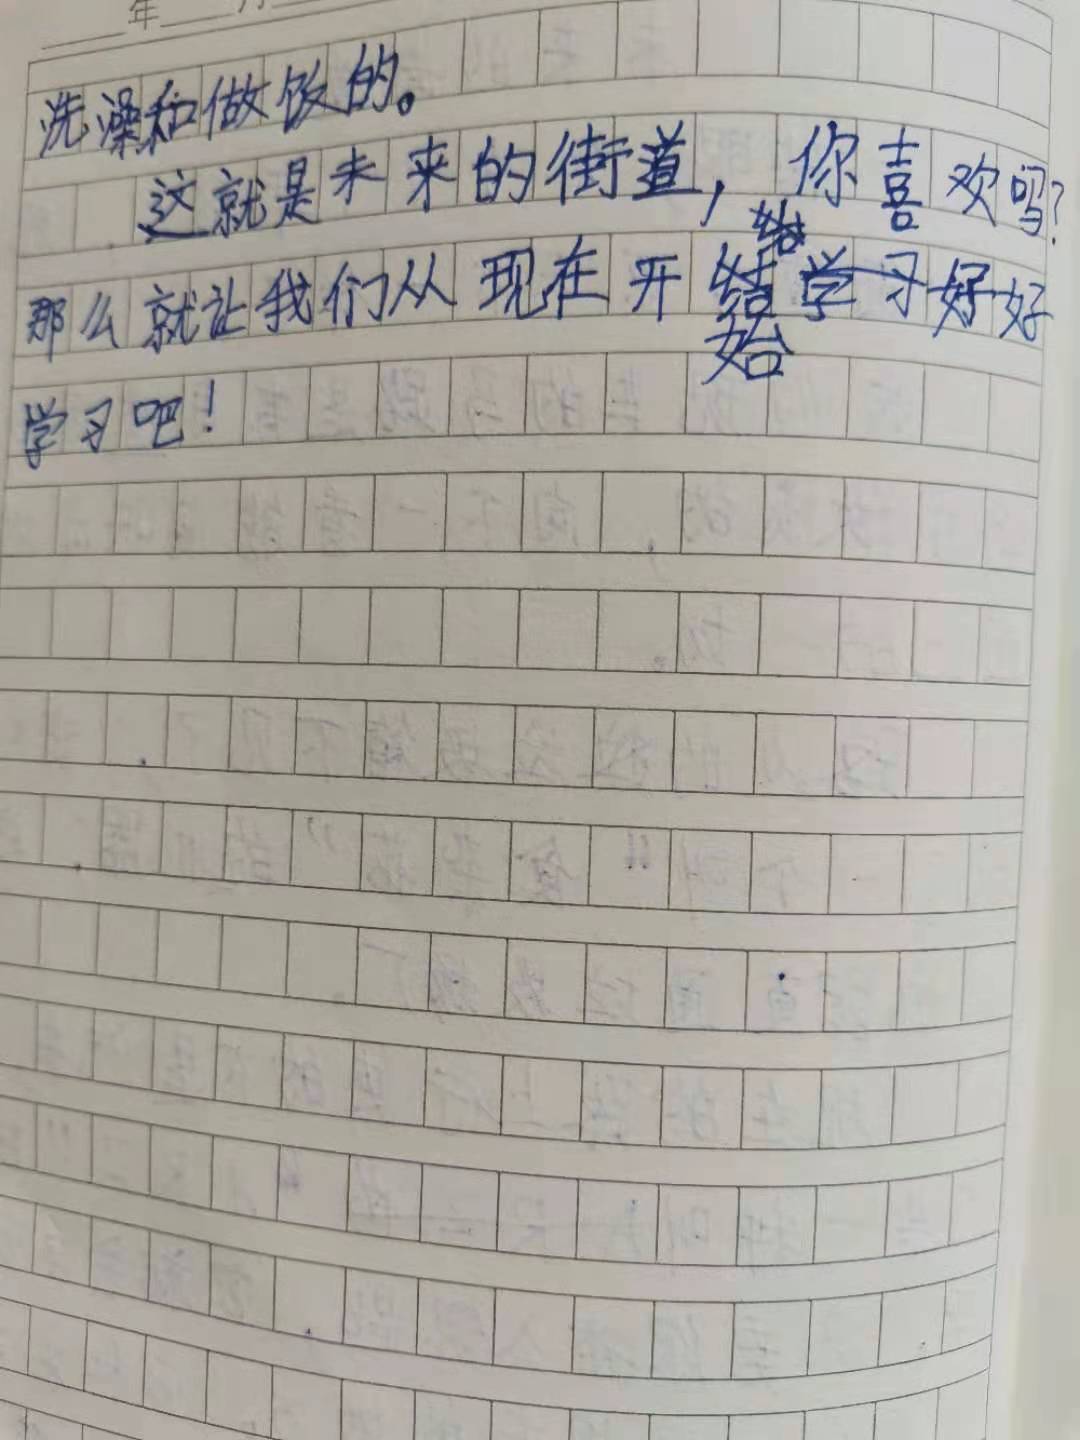 年 月
洗澡和做饭的。
这就是未来的街道，你喜欢吗？
那么就让我们从现在开始好好
学习吧！